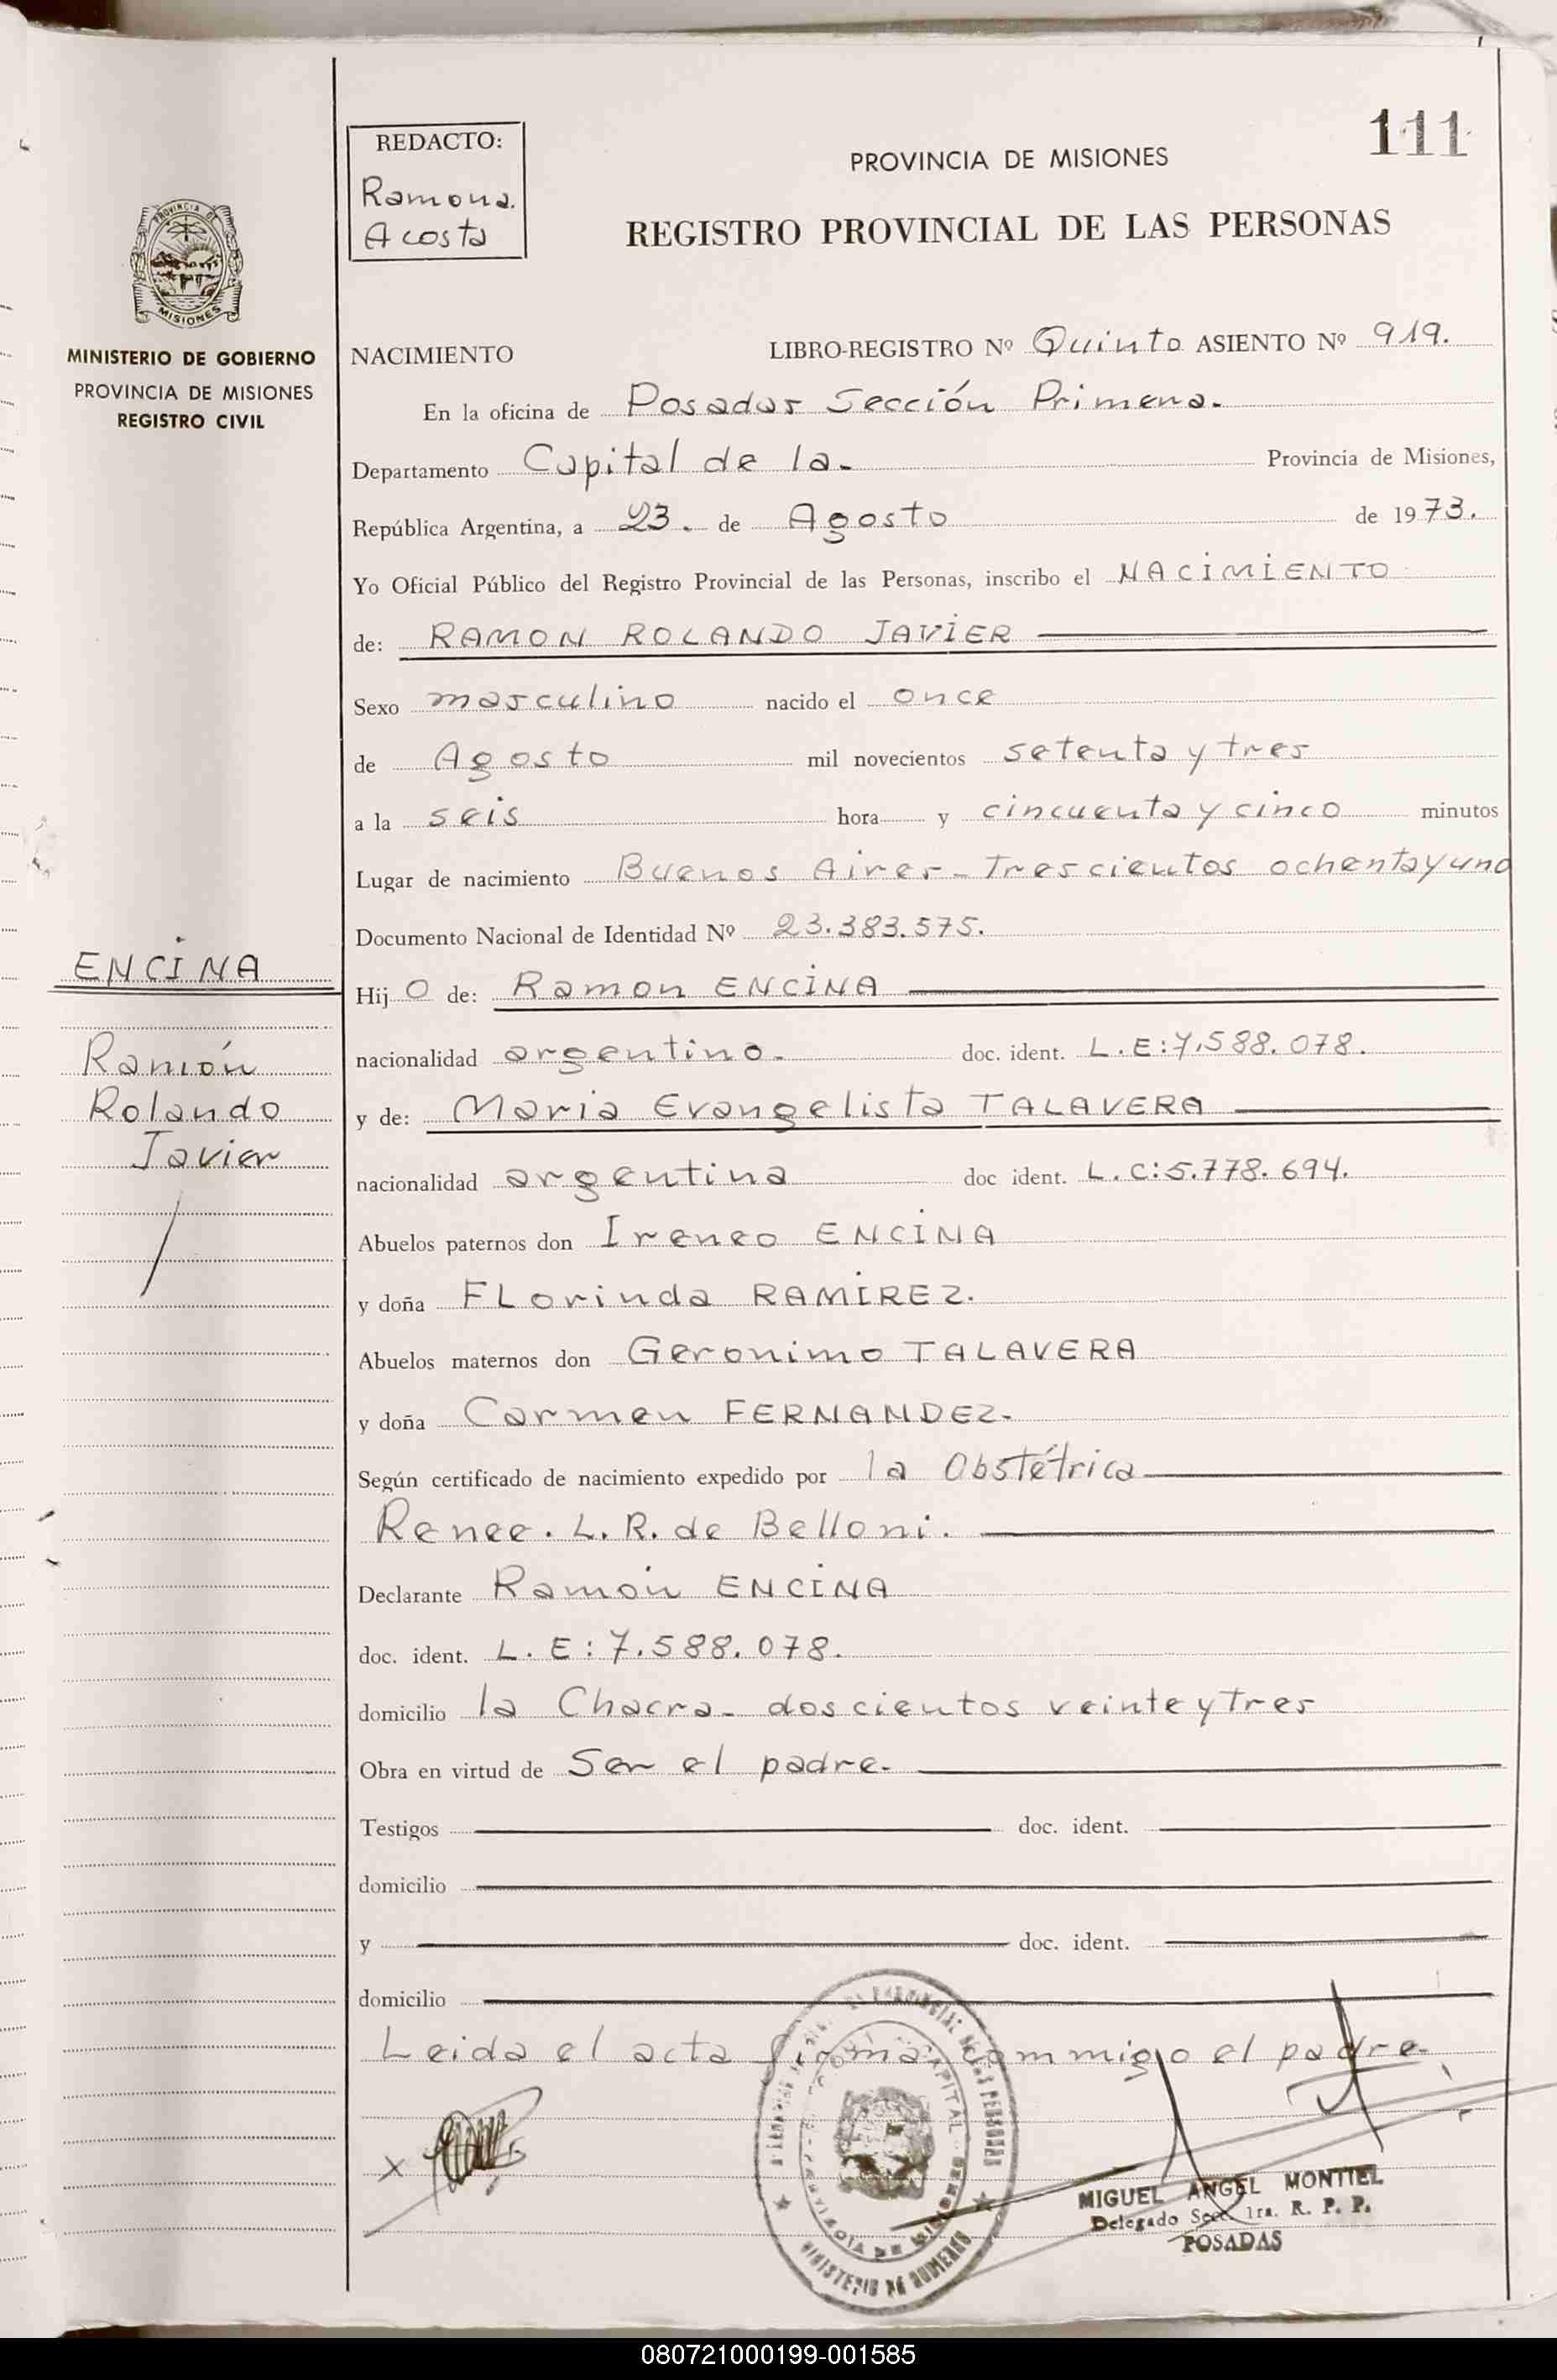 111
REDACTO:
Ramona.
Acosta
PROVINCIA DE MISIONES
REGISTRO PROVINCIAL DE LAS PERSONAS
PROVINCIA DE
MISIONES
MINISTERIO DE GOBIERNO
PROVINCIA DE MISIONES
REGISTRO CIVIL
NACIMIENTO LIBRO-REGISTRO Nº Quinto ASIENTO Nº 919.
En la oficina de Posadas Sección Primera.
Departamento Capital de la. Provincia de Misiones,
República Argentina, a 23. de Agosto de 1973.
Yo Oficial Público del Registro Provincial de las Personas, inscribo el NACIMIENTO
de: RAMON ROLANDO JAVIER
Sexo masculino nacido el once
de Agosto mil novecientos setenta y tres
a la seis hora y cincuenta y cinco minutos
Lugar de nacimiento Buenos Aires - Trescientos ochenta y uno
Documento Nacional de Identidad Nº 23.383.575.
ENCINA
Hijo de: Ramon ENCINA
Ramón
nacionalidad argentino. doc. ident. L.E: 7.588.078.
Rolando
y de: Maria Evangelista TALAVERA
Javier
nacionalidad argentina doc ident. L.C: 5.778.694.
Abuelos paternos don Ireneo ENCINA
y doña FLorinda RAMIREZ.
Abuelos maternos don Geronimo TALAVERA
y doña Carmen FERNANDEZ.
Según certificado de nacimiento expedido por la Obstétrica
Renee. L. R. de Belloni.
Declarante Ramón ENCINA
doc. ident. L. E: 7.588.078.
domicilio la Chacra - doscientos veinte y tres
Obra en virtud de Ser el padre.
Testigos doc. ident.
domicilio
y doc. ident.
domicilio
Leida el acta firma commigo el padre.
x
MIGUEL ANGEL MONTIEL
Delegado Secc. 1ra. R. P. P.
POSADAS
080721000199-001585